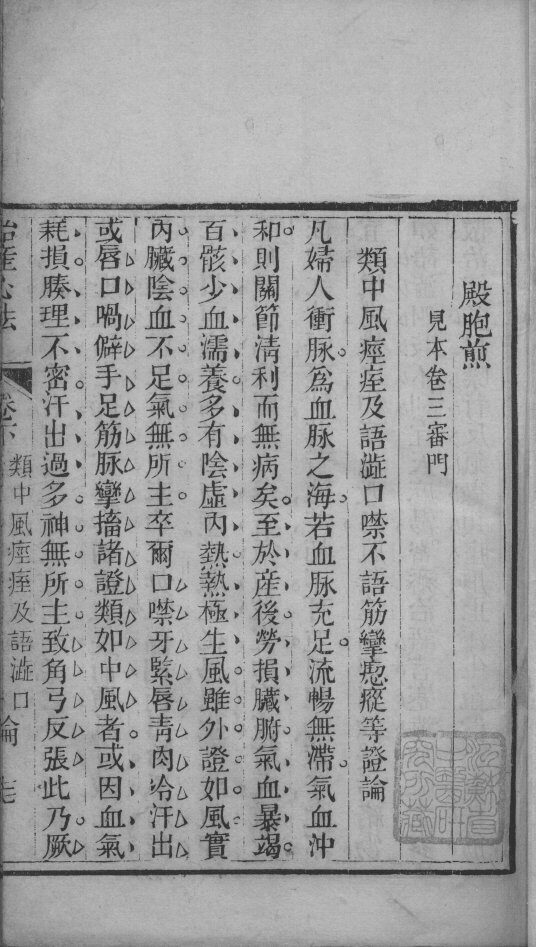 殿胞煎
見本卷三審門
類中風痙痓及語澁口噤不語筋攣瘛瘲等證論
凡婦人衝脉爲血脉之海若血脉充足流暢無滯氣血沖
和則關節清利而無病矣至於產後勞損臟腑氣血暴竭
百骸少血濡養多有陰虛內熱熱極生風雖外證如風實
內臟陰血不足氣無所主卒爾口噤牙緊唇青肉冷汗出
或唇口喎僻手足筋脉攣搐諸證類如中風者或因血氣
耗損腠理不密汗出過多神無所主致角弓反張此乃厥
卷下 類中風痙痓及語澁口 論